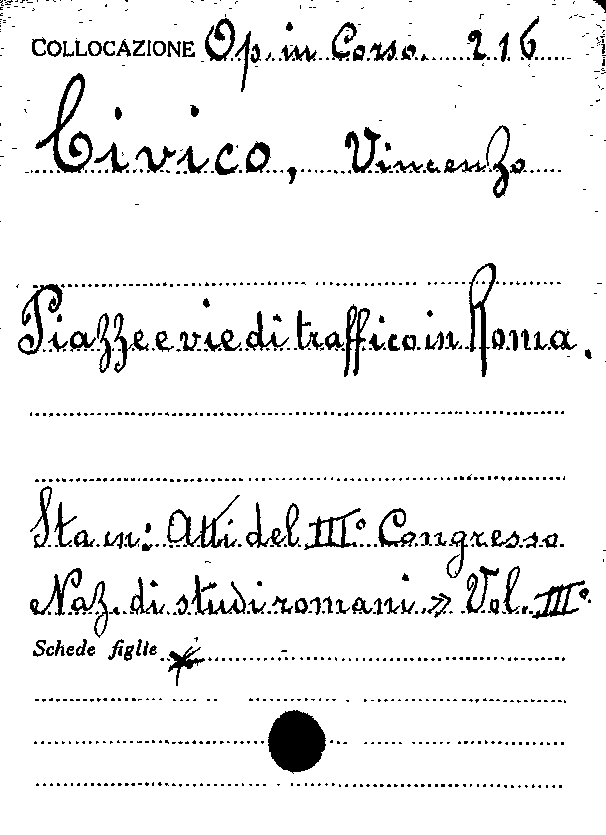 COLLOCAZIONE Op. in Corso. 216
Civico, Vincenzo
Piazze e vie di traffico in Roma.
Sta in: Atti del III° Congresso
Naz. di studi romani » Vol. III°
Schede figlie